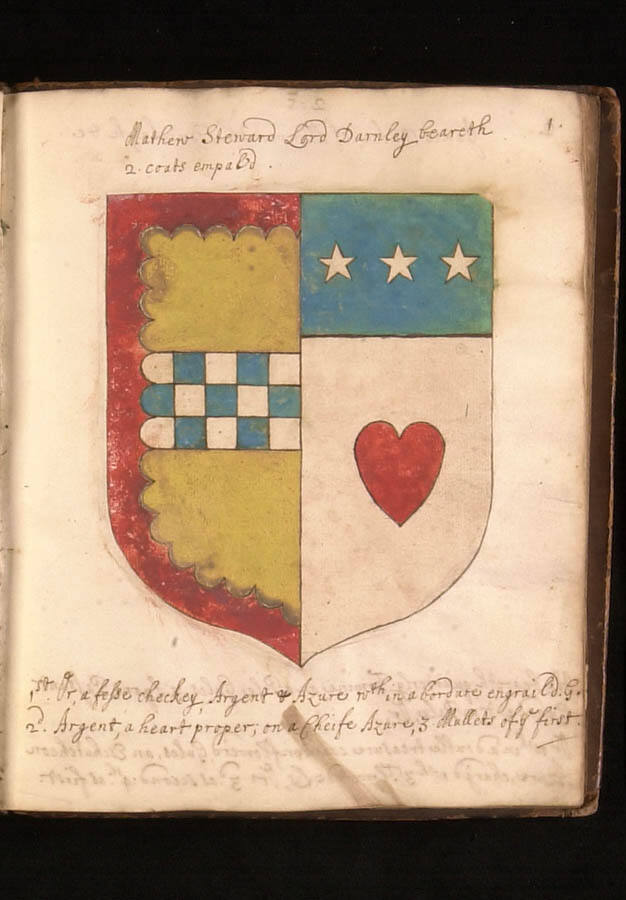 1.
Mathew Steward Lord Darnley beareth
2. coats empal'd.
1st. Or, a fesse checkey Argent & Azure wth in a bordure engrail'd. G.
2d. Argent, a heart proper; on a Cheife Azure, 3 Mullets of ye first.